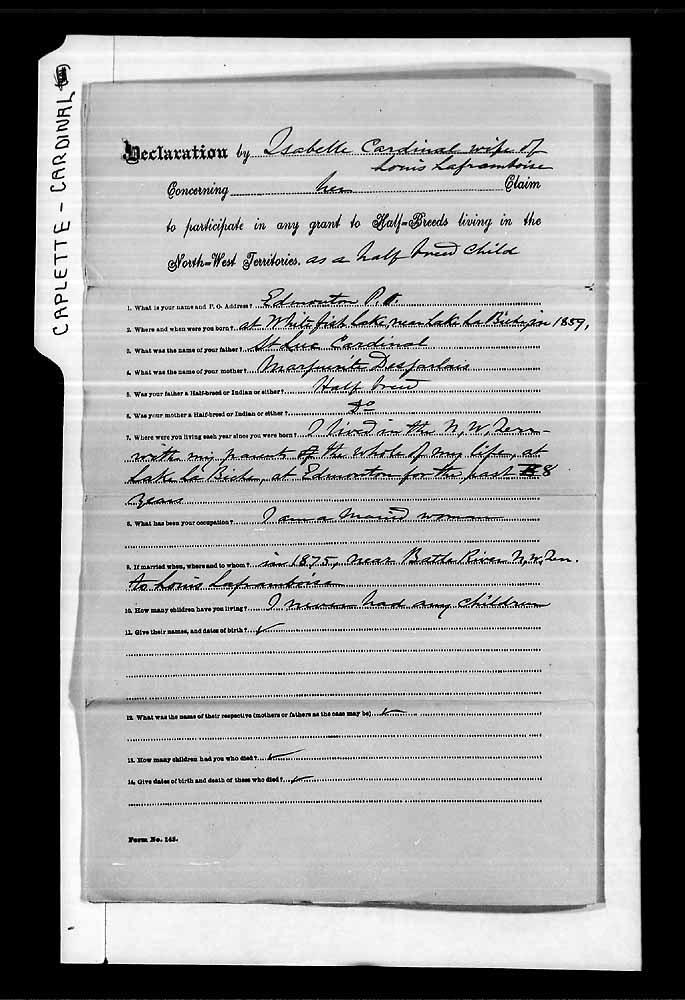 CAPLETTE - CARDINAL
Declaration by Isabelle Cardinal wife of
Louis Laframboise
Concerning her Claim
to participate in any grant to Half-Breeds living in the
North-West Territories. as a half breed child
1. What is your name and P. O. Address? Edmonton P.O.
2. Where and when were you born? at White fish Lake, near Lake La Biche, in 1859,
3. What was the name of your father? St Luc Cardinal
4. What was the name of your mother? Marguerite Desjarlais
5. Was your father a Half-breed or Indian or either? Half breed
6. Was your mother a Half-breed or Indian or either? Do
7. Where were you living each year since you were born? I lived in the N. W. Terr-
with my parents the whole of my life, at
Lake La Biche, at Edmonton for the past 8
years
8. What has been your occupation? I am a married woman
9. If married when, where and to whom? in 1875, near Battle River N.W. Terr.
to Louis Laframboise
10. How many children have you living? I never had any children
11. Give their names, and dates of birth? ✓
12. What was the name of their respective (mothers or fathers as the case may be) ✓
13. How many children had you who died? ✓
14. Give dates of birth and death of these who died? ✓
Form No. 145.